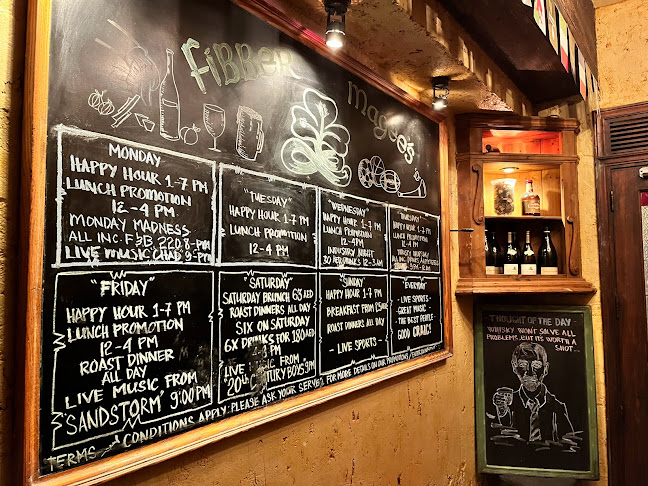 FIBBER Magee's
MONDAY
HAPPY HOUR 1-7 PM
LUNCH PROMOTION
12-4 PM.
MONDAY MADNESS
ALL INC. F&B 220
LIVE MUSIC
"TUESDAY"
HAPPY HOUR 1-7 PM
LUNCH PROMOTION
12-4 PM
"WEDNESDAY"
HAPPY HOUR 1-7 PM
LUNCH PROMOTION
12-4PM
INDUSTRY NIGHT
"THURSDAY"
HAPPY HOUR 1-7 PM
LUNCH PROMOTION
12-4 PM
"FRIDAY"
HAPPY HOUR 1-7 PM
LUNCH PROMOTION
12-4 PM
ROAST DINNER
ALL DAY
LIVE MUSIC FROM
"SANDSTORM" 9:00 PM
"SATURDAY"
SATURDAY BRUNCH
ROAST DINNERS ALL DAY
SIX ON SATURDAY
6X DRINKS FOR 180 AED
LIVE MUSIC FROM
20th CENTURY BOYS 9PM
"SUNDAY
HAPPY HOUR 1-7 PM
BREAKFAST FROM
ROAST DINNERS ALL DAY
- LIVE SPORTS -
"EVERYDAY"
- LIVE SPORTS -
- GREAT MUSIC
- THE BEST PEOPLE
GOOD CRAIC!
TERMS & CONDITIONS APPLY: PLEASE ASK YOUR SERVER FOR MORE DETAILS ON OUR PROMOTIONS
THOUGHT OF THE DAY
WHISKY WON'T SOLVE ALL
PROBLEMS..BUT ITS WORTH A
SHOT...